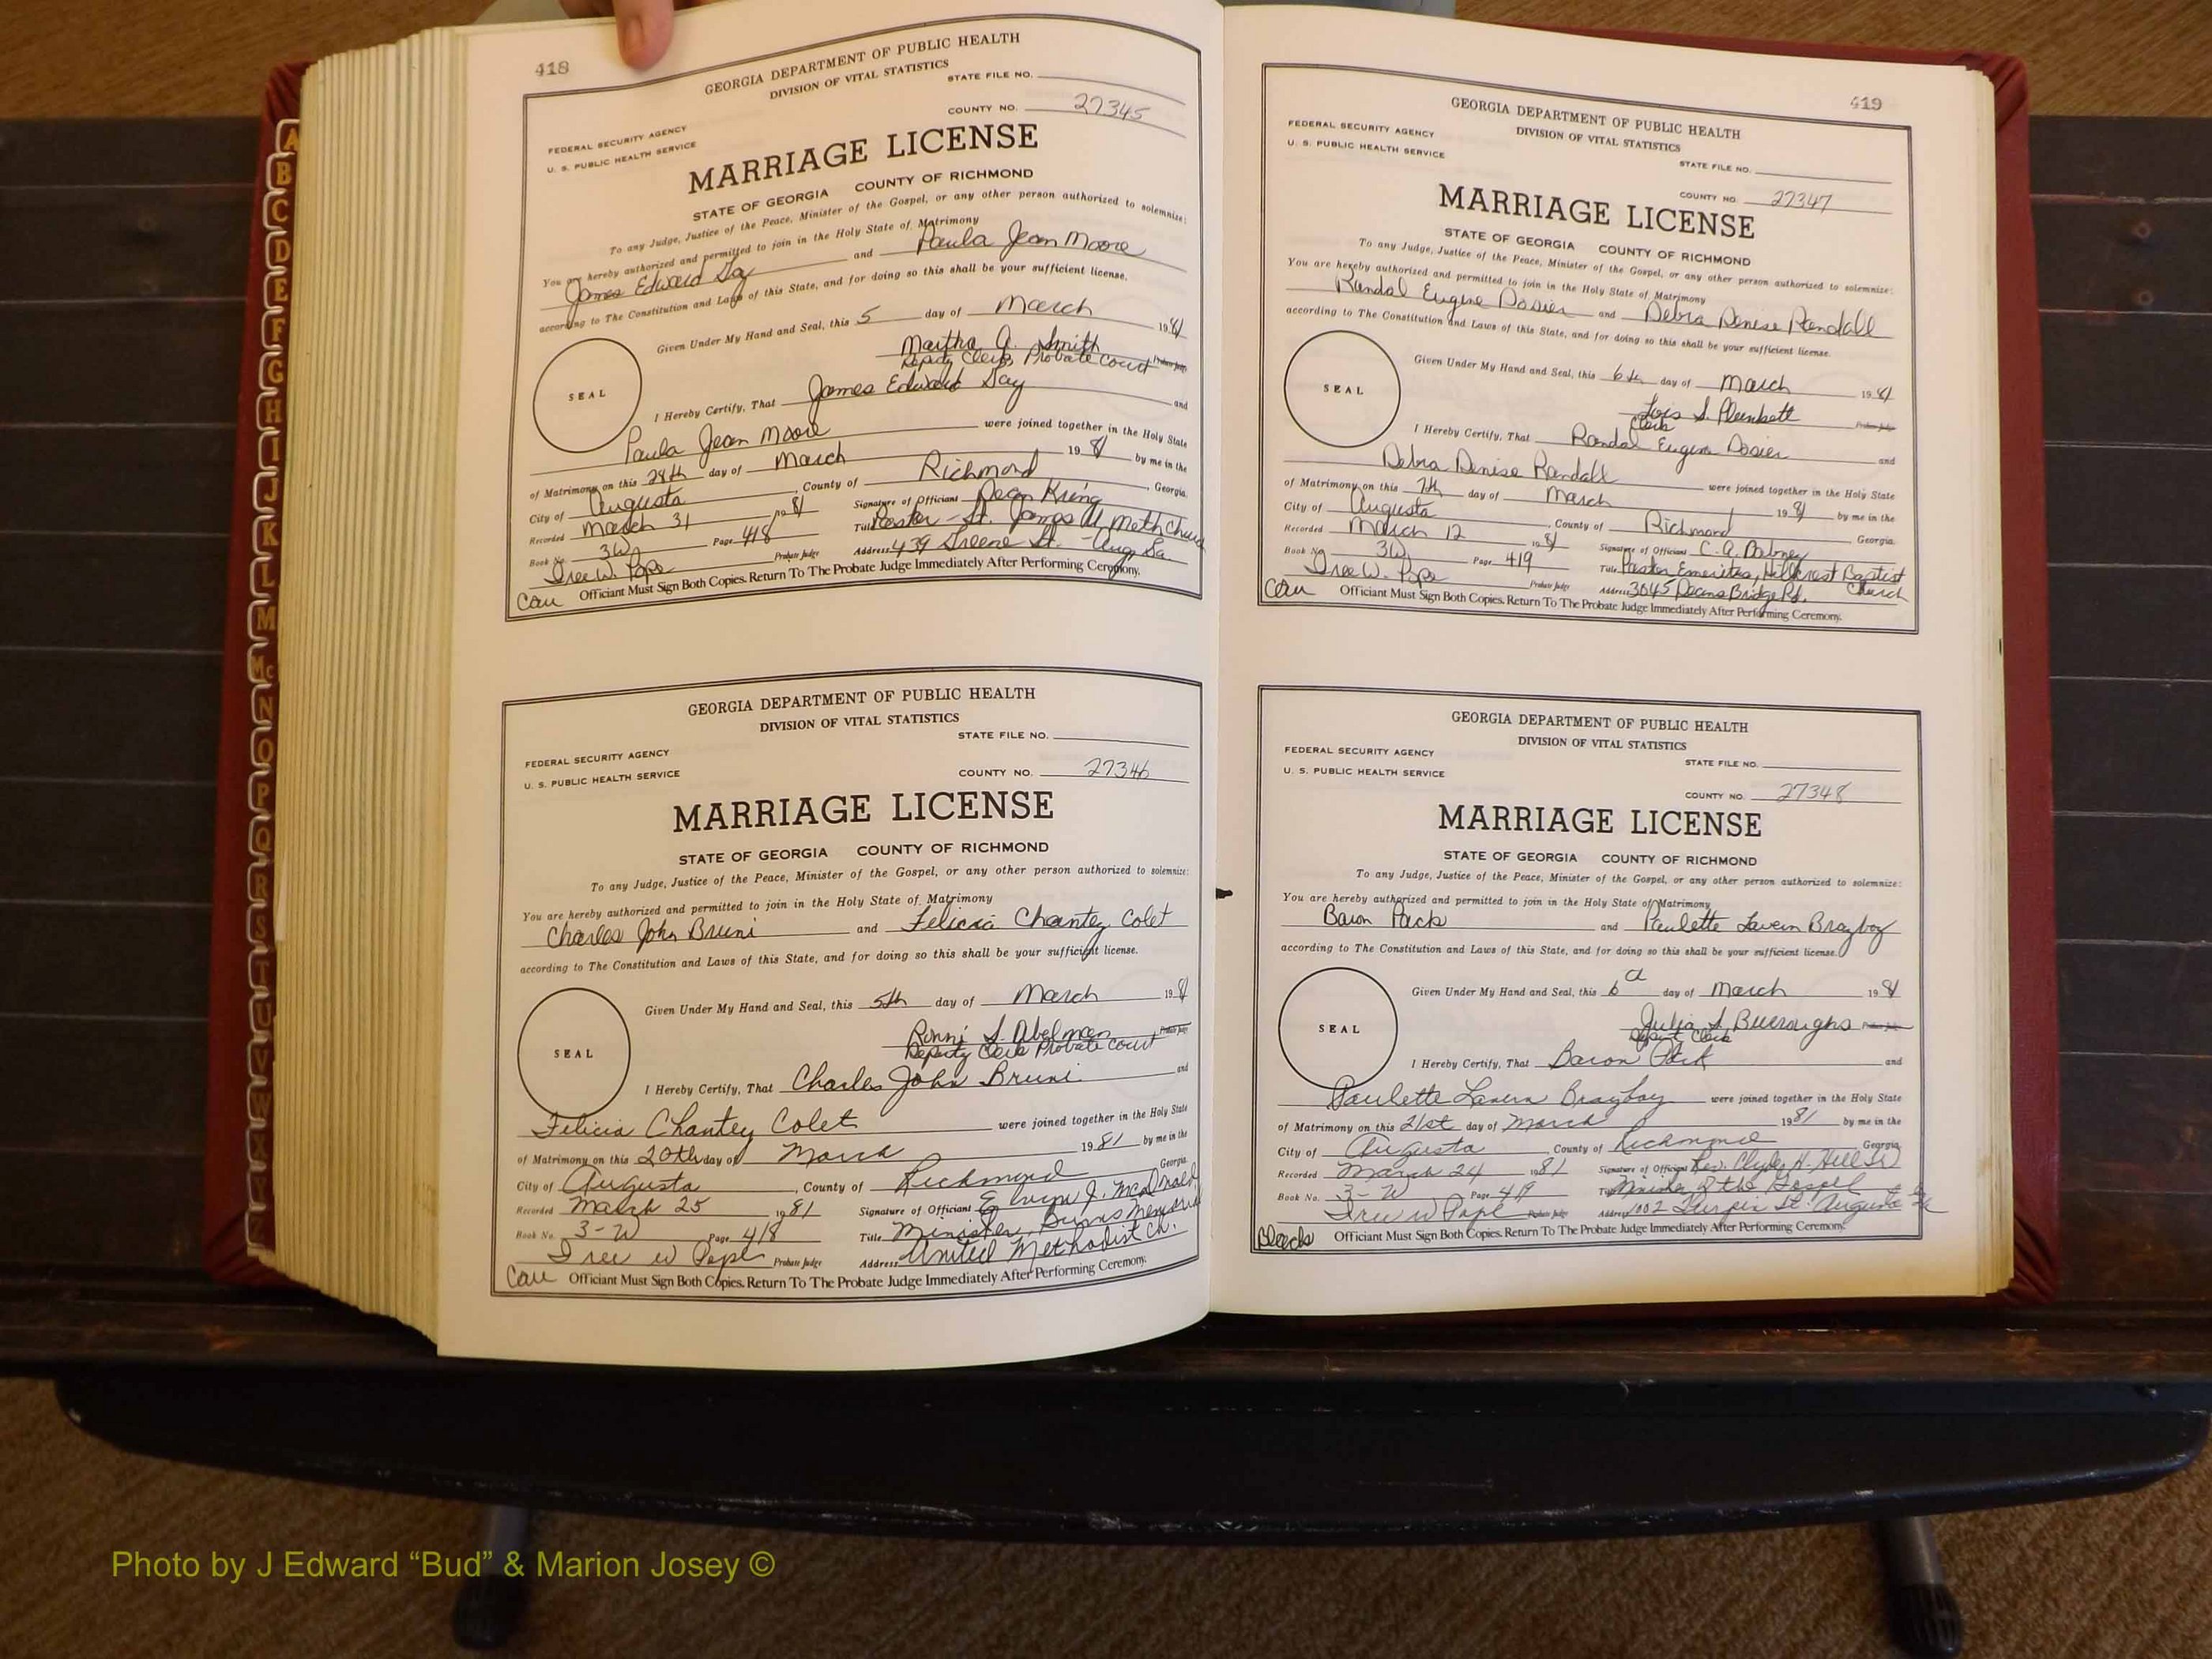 418
GEORGIA DEPARTMENT OF PUBLIC HEALTH
DIVISION OF VITAL STATISTICS
STATE FILE NO.
COUNTY NO. 27345
FEDERAL SECURITY AGENCY
U. S. PUBLIC HEALTH SERVICE
MARRIAGE LICENSE
STATE OF GEORGIA COUNTY OF RICHMOND
To any Judge, Justice of the Peace, Minister of the Gospel, or any other person authorized to solemnize:
You are hereby authorized and permitted to join in the Holy State of Matrimony
James Edward Day and Paula Jean Moore
according to The Constitution and Laws of this State, and for doing so this shall be your sufficient license.
Given Under My Hand and Seal, this 5 day of March 1981
Martha A. Smith
Deputy Clerk, Probate Court Probate Judge
SEAL
I Hereby Certify, That James Edward Day and
Paula Jean Moore were joined together in the Holy State
of Matrimony on this 28th day of March 1981 by me in the
City of Augusta, County of Richmond, Georgia.
Recorded March 31 1981 Signature of Officiant Dean Kring
Book No. 3W Page 418 Title Pastor - St. James U Meth Church
Iree W. Pope Probate Judge Address 439 Greene St. - Aug, Ga
Cau Officiant Must Sign Both Copies. Return To The Probate Judge Immediately After Performing Ceremony.
GEORGIA DEPARTMENT OF PUBLIC HEALTH
DIVISION OF VITAL STATISTICS
STATE FILE NO.
FEDERAL SECURITY AGENCY
U. S. PUBLIC HEALTH SERVICE
COUNTY NO. 27346
MARRIAGE LICENSE
STATE OF GEORGIA COUNTY OF RICHMOND
To any Judge, Justice of the Peace, Minister of the Gospel, or any other person authorized to solemnize:
You are hereby authorized and permitted to join in the Holy State of Matrimony
Charles John Bruni and Felicia Chantey Colet
according to The Constitution and Laws of this State, and for doing so this shall be your sufficient license.
Given Under My Hand and Seal, this 5th day of March 1981
Ronni S. Abelman Probate Judge
Deputy Clerk Probate Court
SEAL
I Hereby Certify, That Charles John Bruni and
Felicia Chantey Colet were joined together in the Holy State
of Matrimony on this 20th day of March 1981 by me in the
City of Augusta, County of Richmond Georgia.
Recorded March 25 1981 Signature of Officiant E J. McDonald
Book No. 3-W Page 418 Title Minister, Burns Memorial
Iree W Pope Probate Judge Address United Methodist Ch.
Cau Officiant Must Sign Both Copies. Return To The Probate Judge Immediately After Performing Ceremony.
419
GEORGIA DEPARTMENT OF PUBLIC HEALTH
DIVISION OF VITAL STATISTICS
FEDERAL SECURITY AGENCY
U. S. PUBLIC HEALTH SERVICE
STATE FILE NO.
COUNTY NO. 27347
MARRIAGE LICENSE
STATE OF GEORGIA COUNTY OF RICHMOND
To any Judge, Justice of the Peace, Minister of the Gospel, or any other person authorized to solemnize:
You are hereby authorized and permitted to join in the Holy State of Matrimony
Randal Eugene Dosier and Debra Denise Randall
according to The Constitution and Laws of this State, and for doing so this shall be your sufficient license.
Given Under My Hand and Seal, this 6th day of March 1981
Lois S. Plunkett
Clerk Probate Judge
SEAL
I Hereby Certify, That Randal Eugene Dosier and
Debra Denise Randall were joined together in the Holy State
of Matrimony on this 7th day of March 1981 by me in the
City of Augusta, County of Richmond Georgia.
Recorded March 12 1981 Signature of Officiant C. A. Dabney
Book No. 3W Page 419 Title Pastor Emeritus, Hillcrest Baptist Church
Iree W. Pope Probate Judge Address 3045 Deans Bridge Rd.
Cau Officiant Must Sign Both Copies. Return To The Probate Judge Immediately After Performing Ceremony.
GEORGIA DEPARTMENT OF PUBLIC HEALTH
DIVISION OF VITAL STATISTICS
FEDERAL SECURITY AGENCY
STATE FILE NO.
U. S. PUBLIC HEALTH SERVICE
COUNTY NO. 27348
MARRIAGE LICENSE
STATE OF GEORGIA COUNTY OF RICHMOND
To any Judge, Justice of the Peace, Minister of the Gospel, or any other person authorized to solemnize:
You are hereby authorized and permitted to join in the Holy State of Matrimony
Baron Pack and Paulette Lavern Brayboy
according to The Constitution and Laws of this State, and for doing so this shall be your sufficient license.
Given Under My Hand and Seal, this 6 day of March 1981
Julia S. Burroughs Probate Judge
Deputy Clerk
SEAL
I Hereby Certify, That Baron Pack and
Paulette Lavern Brayboy were joined together in the Holy State
of Matrimony on this 21st day of March 1981 by me in the
City of Augusta, County of Richmond Georgia.
Recorded March 24 1981 Signature of Officiant Rev. Clyde H. Hill Sr
Book No. 3-W Page 419 Title Minister of the Gospel
Iree W Pope Probate Judge Address 1002 Turpin St. Augusta Ga
Blacks Officiant Must Sign Both Copies. Return To The Probate Judge Immediately After Performing Ceremony.
A
B
C
D
E
F
G
H
I
J
K
L
M
Mc
N
O
P
Q
R
S
T
U
V
W
X
Y
Z
Photo by J Edward “Bud” & Marion Josey ©